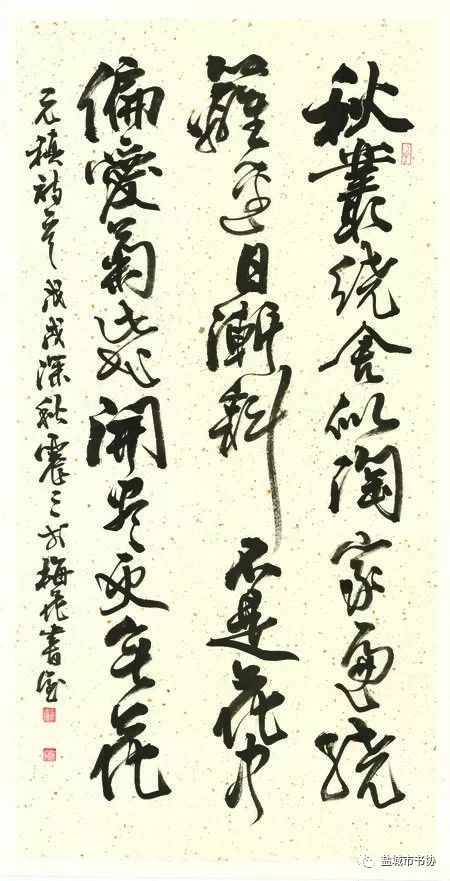 秋叢绕舍似陶家遍绕
籬边日漸斜不是花中
偏愛菊此花開尽更無花
元稹诗 戊戌深秋震之于梅花書屋
盐城市书协